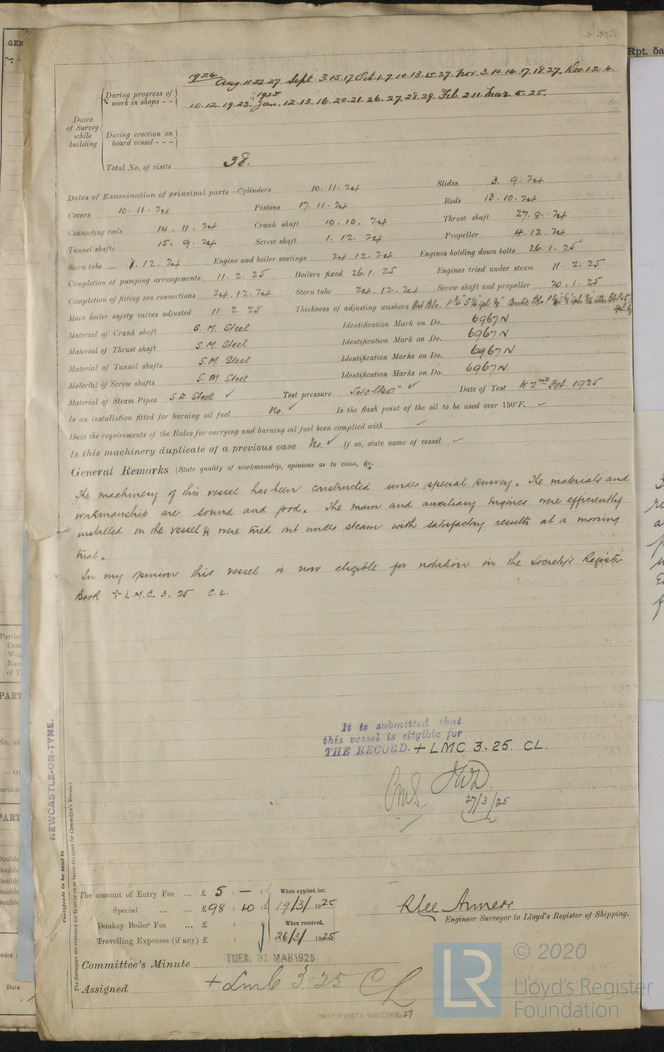 1924
Aug. 11. 22. 27. Sept. 3. 15. 17. Oct. 1. 7. 10. 13. 15. 27. Nov. 3. 10. 14. 17. 18. 27. Dec. 1. 2. 4.
During progress of work in shops - -
1925
10. 12. 19. 23. Jan. 12. 13. 16. 20. 21. 26. 27. 28. 29. Feb. 2. 11. Mar. 5. 25.
Dates of Survey while building
During erection on board vessel - - -
Total No. of visits 38.
Dates of Examination of principal parts—Cylinders 10. 11. 24 Slides 3. 9. 24
Covers 10. 11. 24 Pistons 17. 11. 24 Rods 13. 10. 24
Connecting rods 14. 11. 24 Crank shaft 10. 10. 24 Thrust shaft 27. 8. 24
Tunnel shafts 15. 9. 24 Screw shaft 1. 12. 24 Propeller 4. 12. 24
Stern tube 1. 12. 24 Engine and boiler seatings 24. 12. 24 Engines holding down bolts 26. 1. 25
Completion of pumping arrangements 11. 2. 25 Boilers fixed 26. 1. 25 Engines tried under steam 11. 2. 25
Completion of fitting sea connections 24. 12. 24 Stern tube 24. 12. 24 Screw shaft and propeller 20. 1. 25
Main boiler safety valves adjusted 11. 2. 25 Thickness of adjusting washers
Material of Crank shaft S. M. Steel Identification Mark on Do. 6967N
Material of Thrust shaft S. M. Steel Identification Mark on Do. 6967N
Material of Tunnel shafts S. M. Steel Identification Marks on Do. 6967N
Material of Screw shafts S. M. Steel Identification Marks on Do. 6967N.
Material of Steam Pipes S. D. Steel ✓ Test pressure ✓ Date of Test 1925
Is an installation fitted for burning oil fuel No. ✓ Is the flash point of the oil to be used over 150°F. –
Have the requirements of the Rules for carrying and burning oil fuel been complied with –
Is this machinery duplicate of a previous case No. ✓ If so, state name of vessel –
General Remarks (State quality of workmanship, opinions as to class, &c.
The machinery of this vessel has been constructed under special survey. The materials and
workmanship are sound and good. The main and auxiliary Engines were efficiently
installed on the vessel & were tried out under steam with satisfactory results at a mooring
trial.
In my opinion this vessel is now eligible for notation in the Society's Register
Book + L.M.C. 3. 25 C.L.
It is submitted that
this vessel is eligible for
THE RECORD. + LMC 3. 25 CL.
27/3/25
NEWCASTLE-ON-TYNE.
Certificate to be sent to
The amount of Entry Fee ... £ 5 : — : When applied for,
Special ... ... £98 : 10 : 19/3/1925
Donkey Boiler Fee ... £ : : When received,
Travelling Expenses (if any) £ : : 26/3/1925
Engineer Surveyor to Lloyd's Register of Shipping.
Committee's Minute TUES. 31 MAR 1925
Assigned + LMC 3. 25 CL
LR
© 2020
Lloyd's Register
Foundation
Rpt. 5a